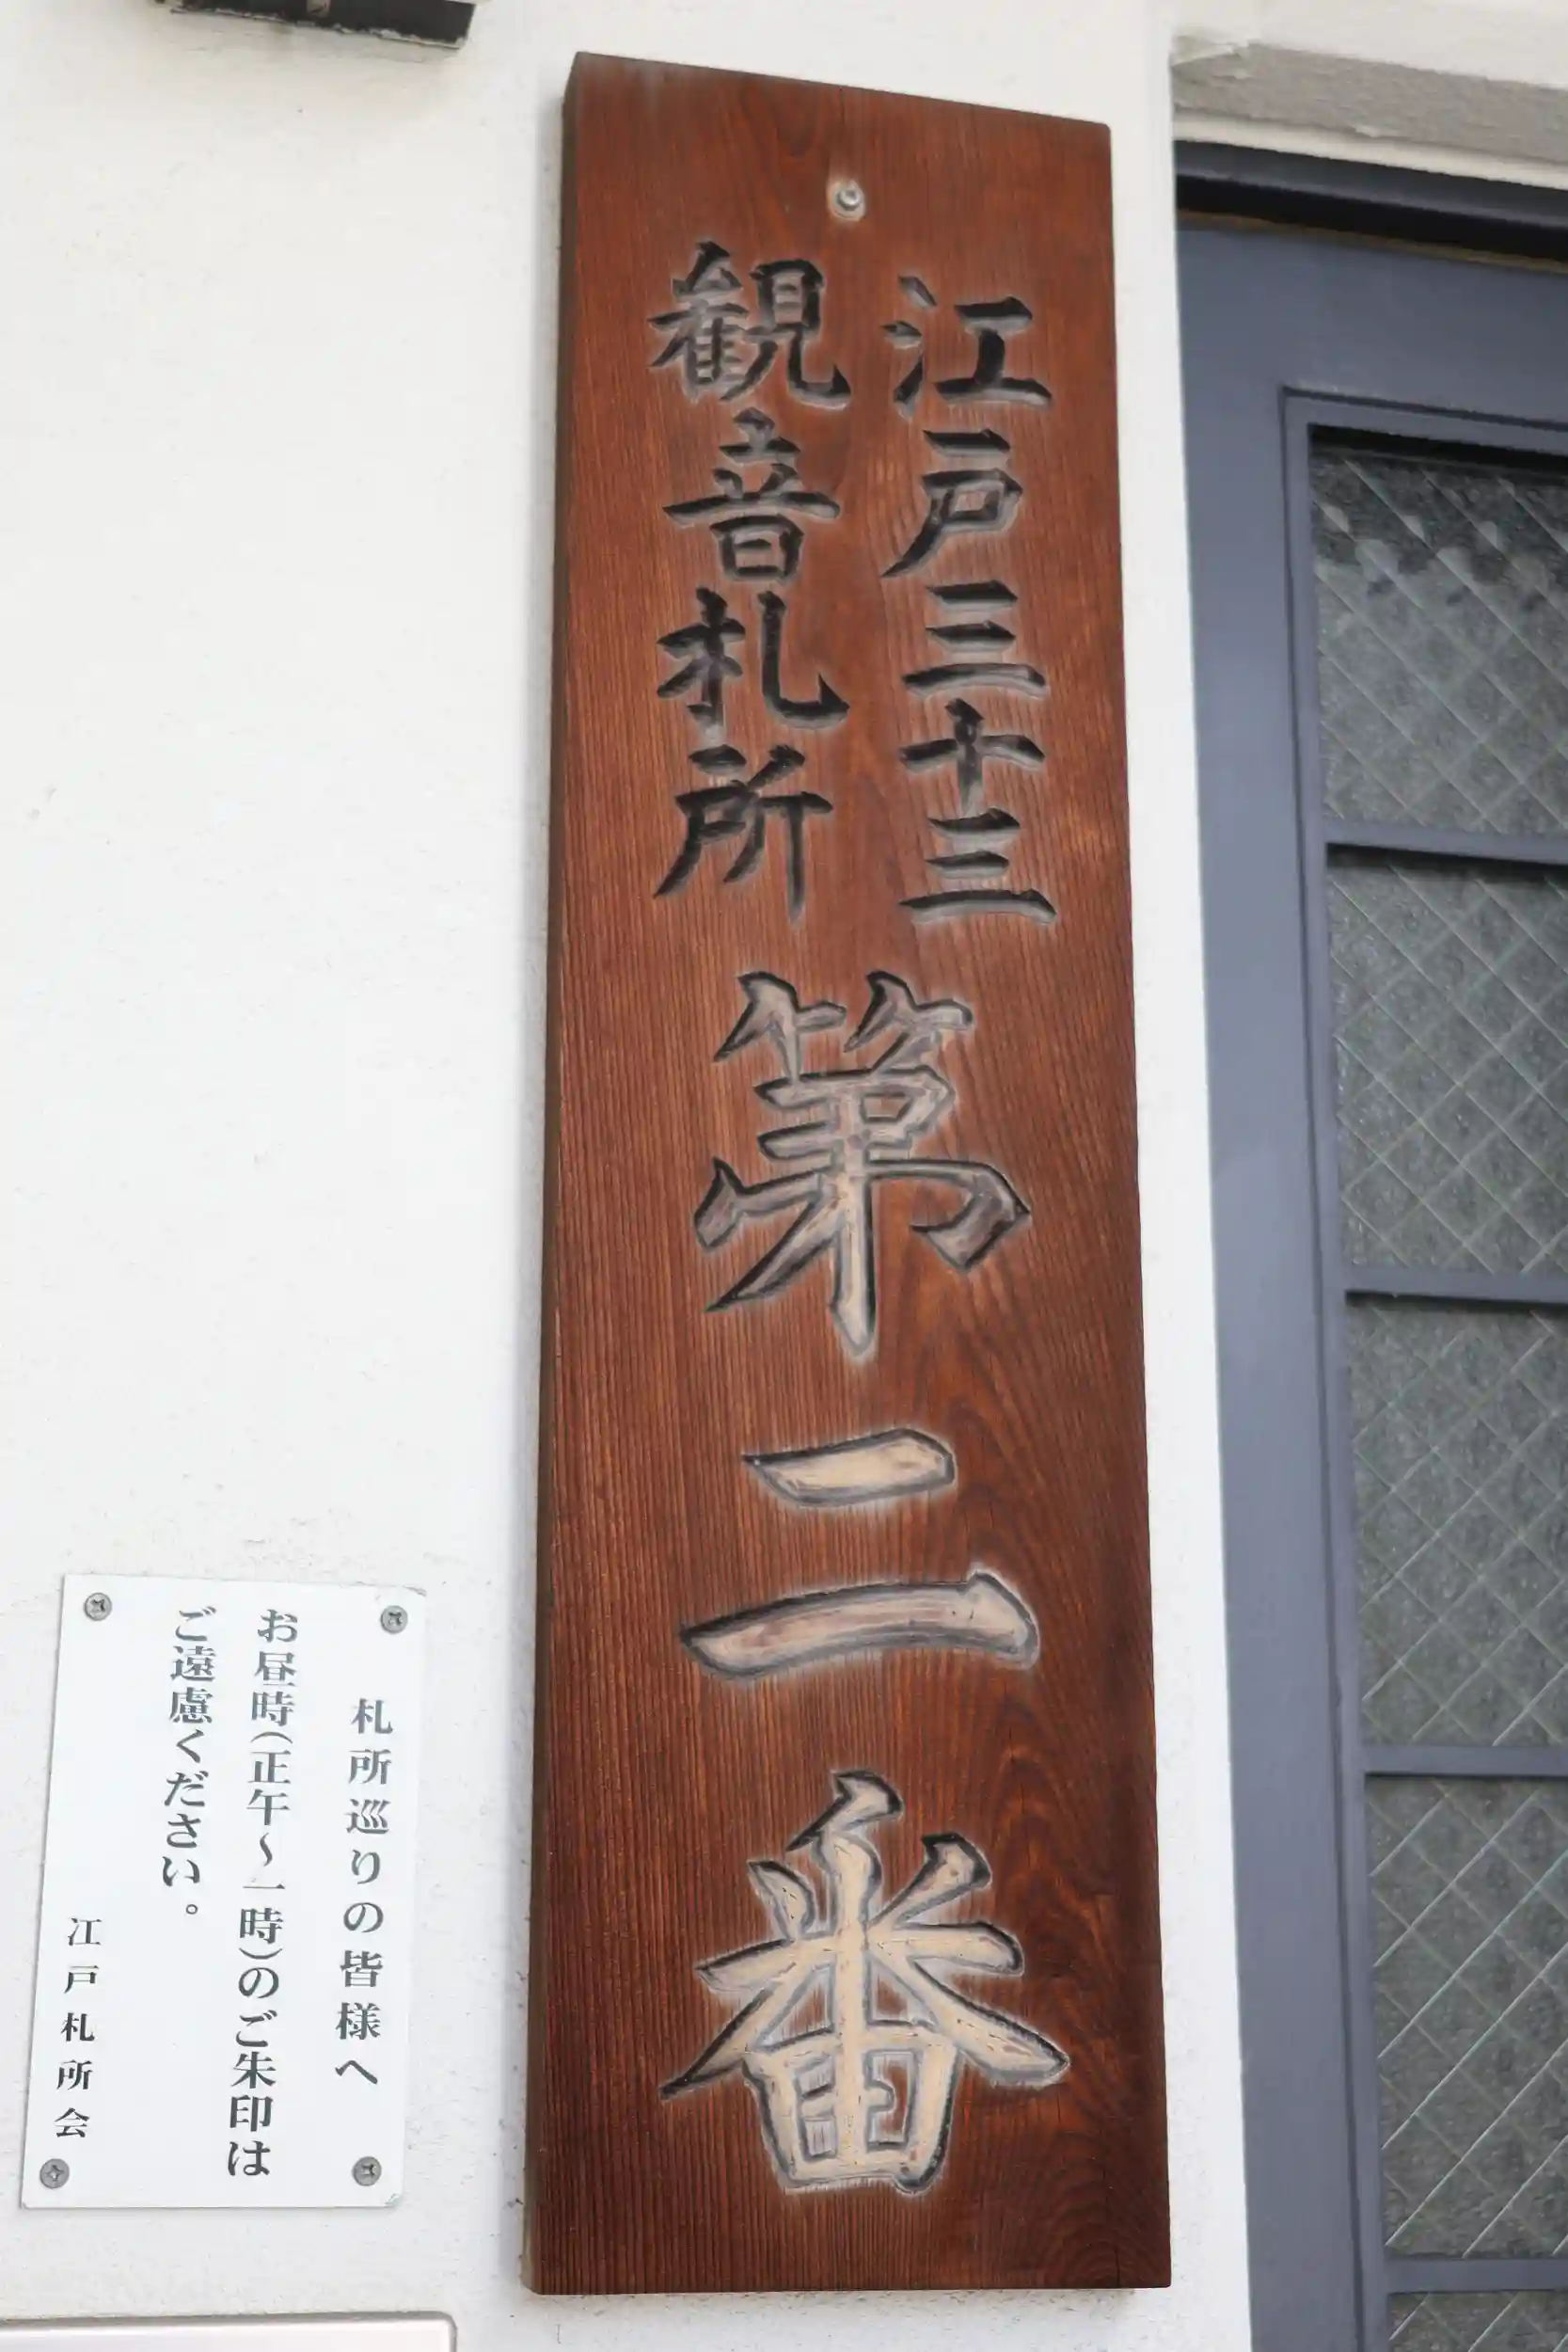 江戸三十三
観音札所
第二番
札所巡りの皆様へ
お昼時(正午〜一時)のご朱印は
ご遠慮ください。
江戸札所会